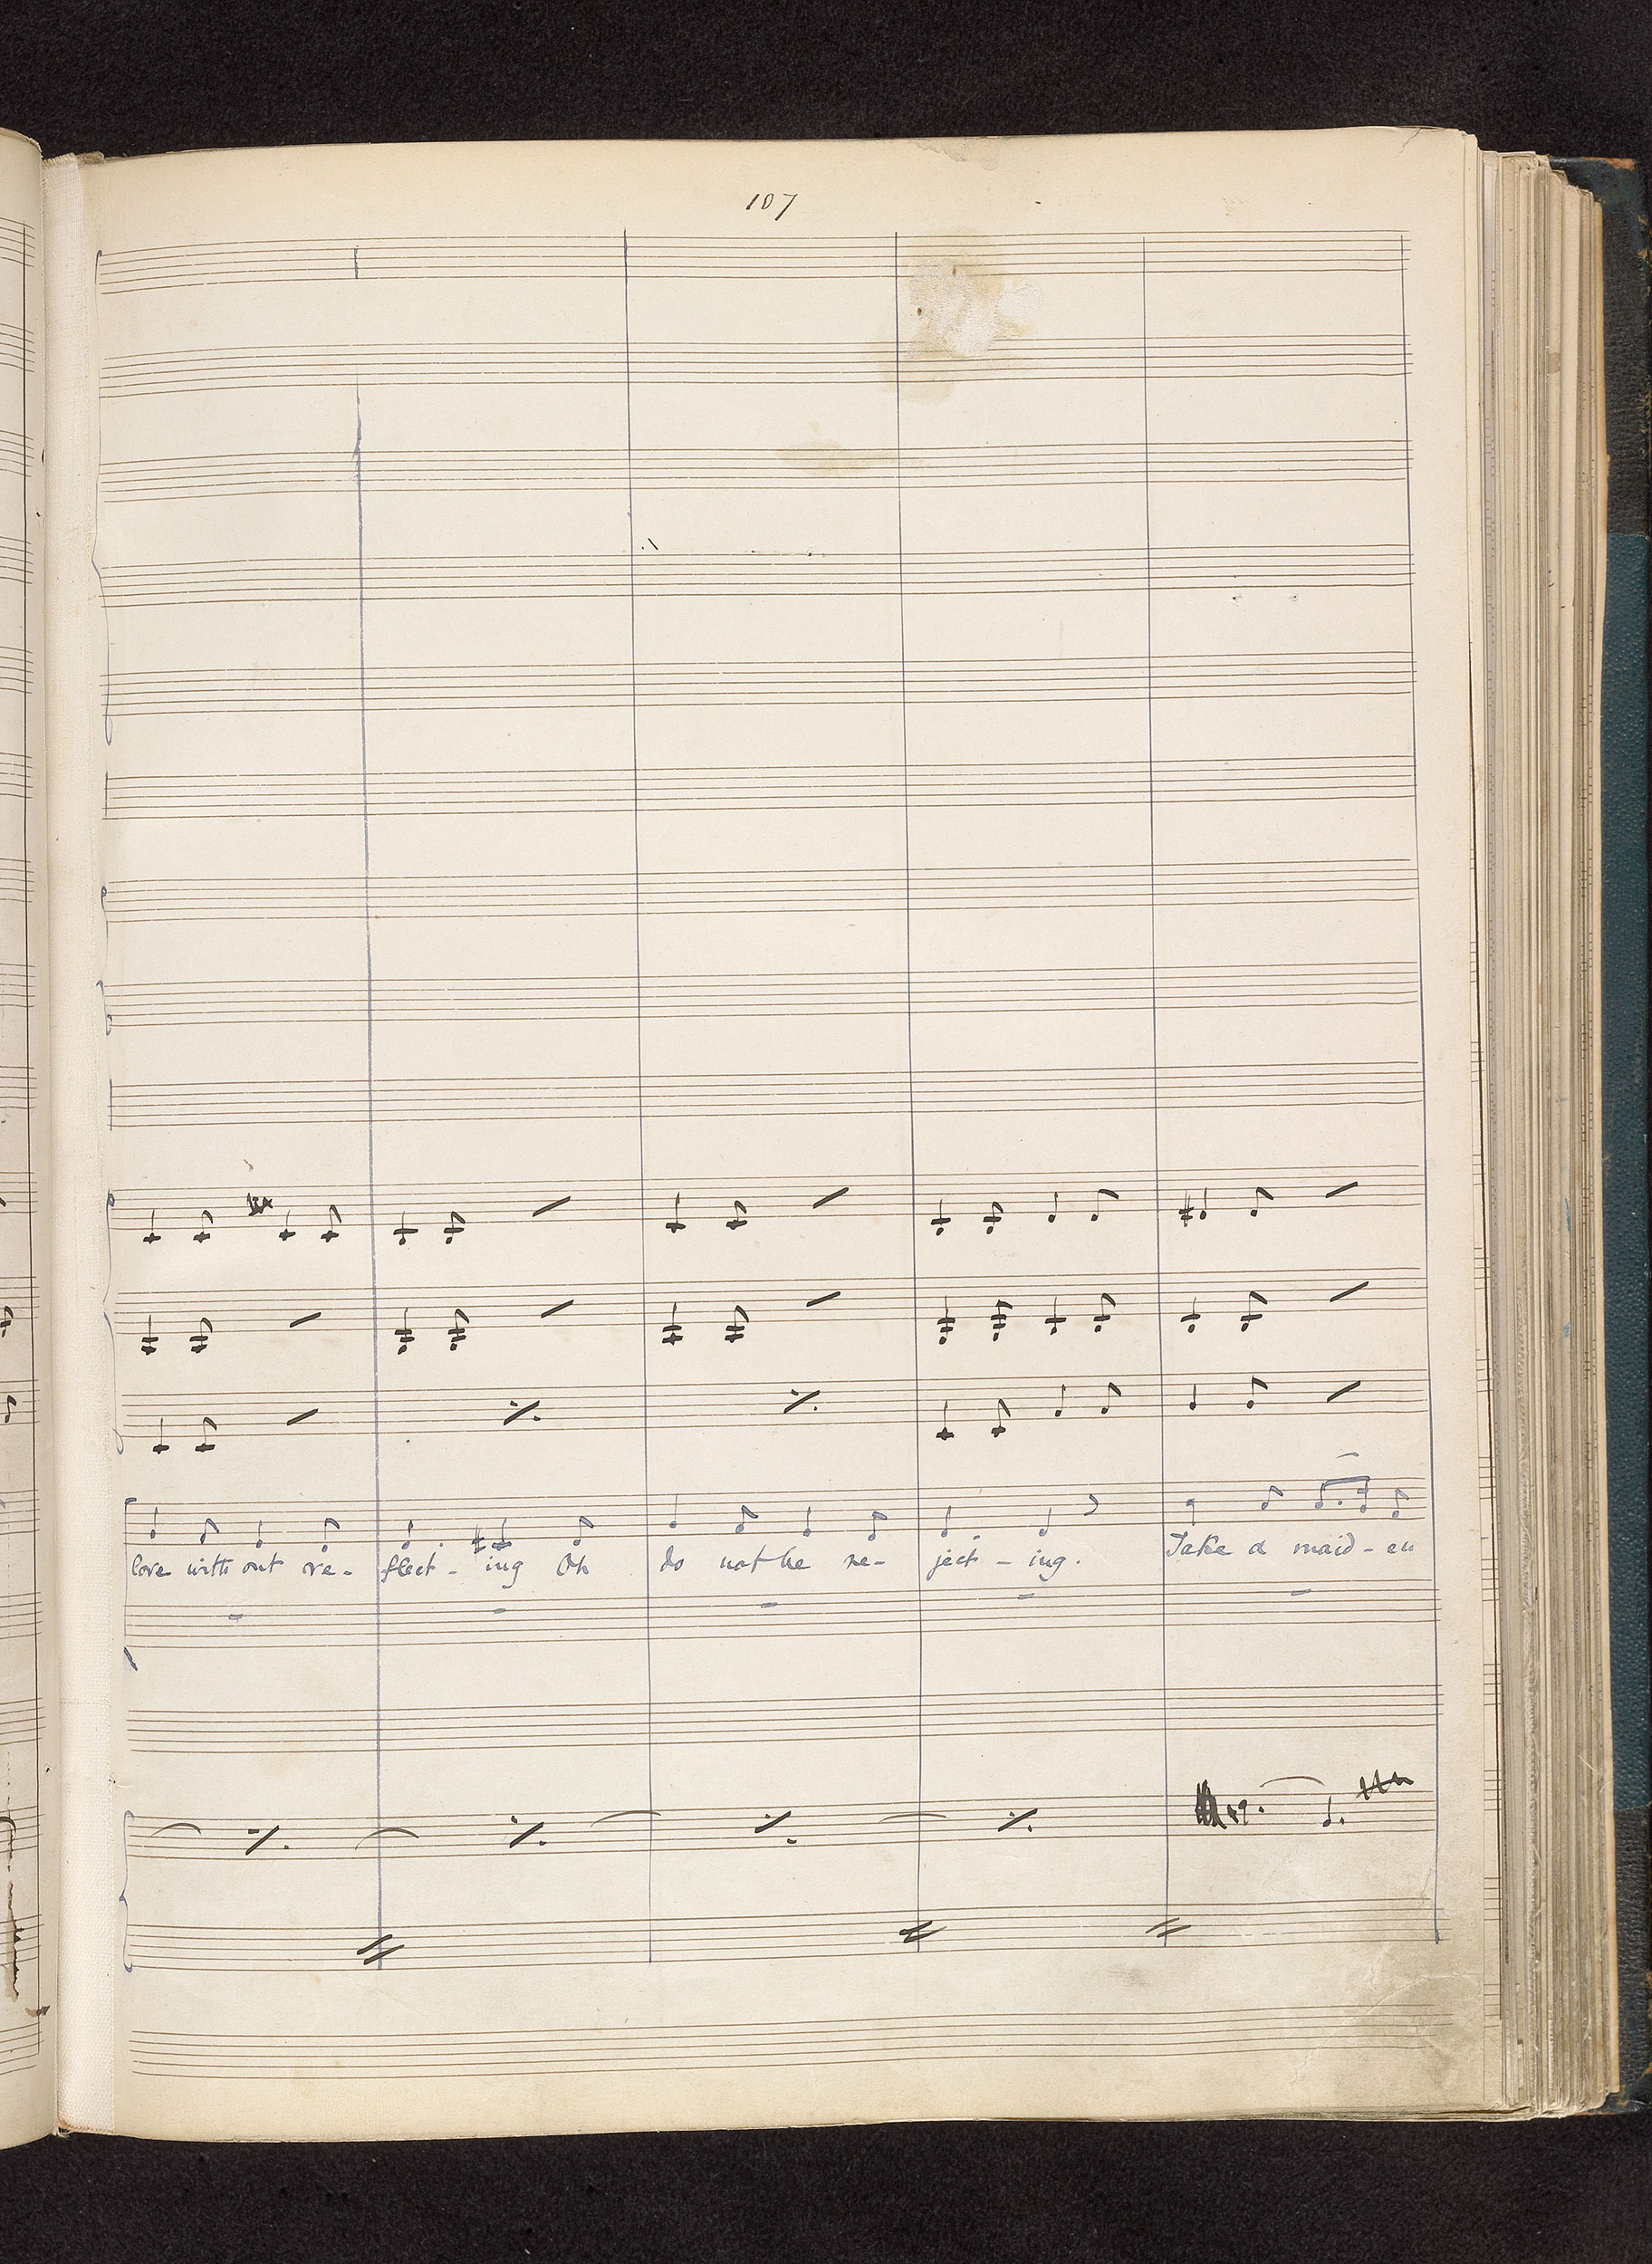 107
love with out re- flect - ing Oh do not be re- ject - ing. Take a maid - en